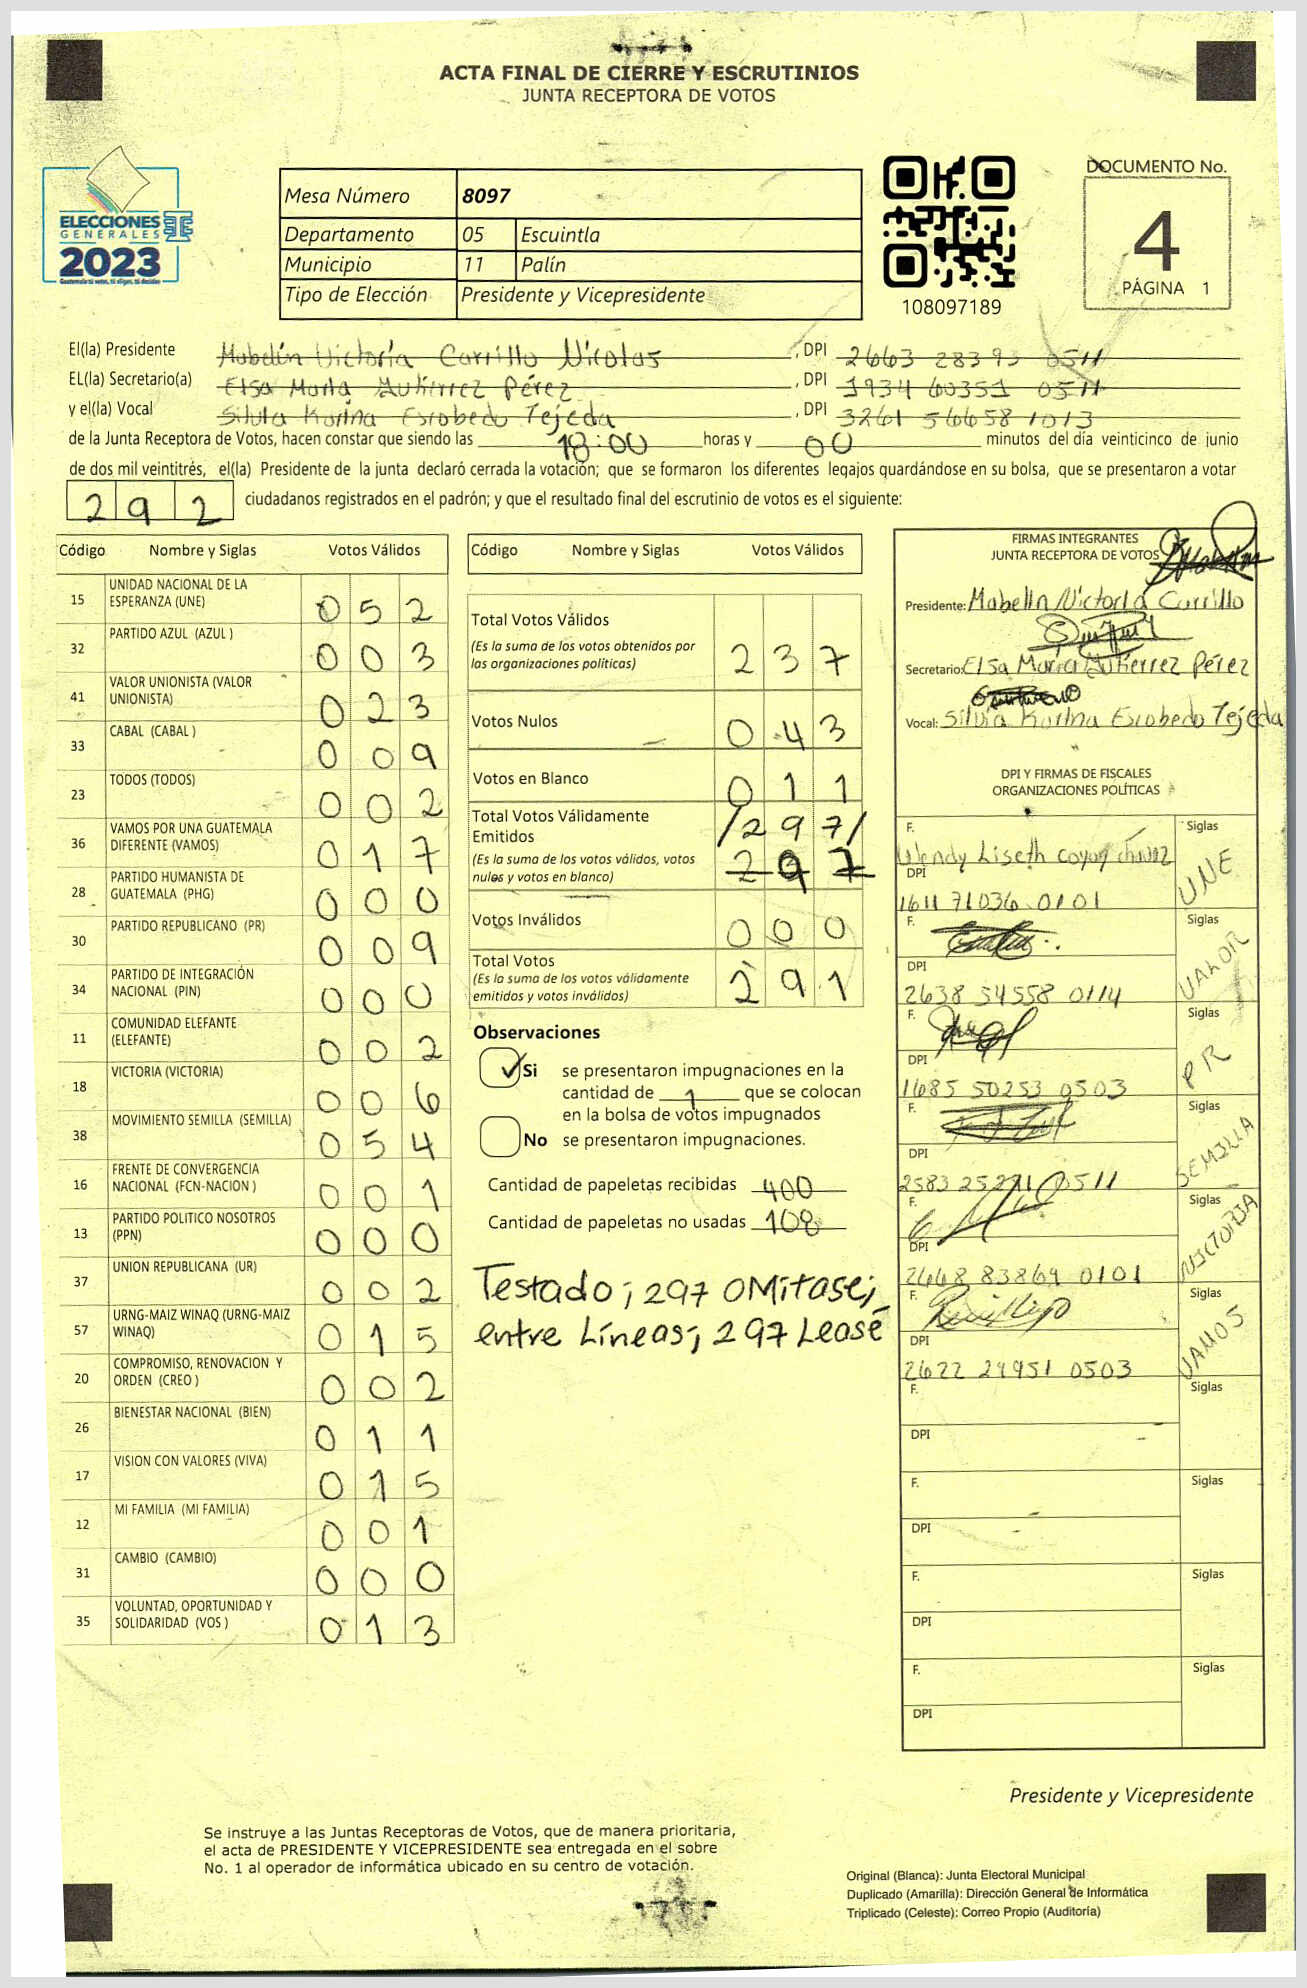 ACTA FINAL DE CIERRE Y ESCRUTINIOS
JUNTA RECEPTORA DE VOTOS
ELECCIONES
GENERALES
2023
Guatemala tú votas, tú eliges, tú decides
Mesa Número 8097
Departamento 05 Escuintla
Municipio 11 Palín
Tipo de Elección Presidente y Vicepresidente
108097189
DOCUMENTO No.
4
PÁGINA 1
El(la) Presidente Mabelin Victoria Carrillo Nicolas, DPI 2663 28393 0511
EL(la) Secretario(a) Elsa María Gutiérrez Pérez, DPI 1934 60351 0511
y el(la) Vocal Silvia Karina Escobedo Tejeda, DPI 3261 56658 1013
de la Junta Receptora de Votos, hacen constar que siendo las 18:00 horas y 00 minutos del día veinticinco de junio
de dos mil veintitrés, el(la) Presidente de la junta declaró cerrada la votación; que se formaron los diferentes legajos guardándose en su bolsa, que se presentaron a votar
292 ciudadanos registrados en el padrón; y que el resultado final del escrutinio de votos es el siguiente:
Código Nombre y Siglas Votos Válidos
15 UNIDAD NACIONAL DE LA ESPERANZA (UNE) 052
32 PARTIDO AZUL (AZUL ) 003
41 VALOR UNIONISTA (VALOR UNIONISTA) 023
33 CABAL (CABAL ) 009
23 TODOS (TODOS) 002
36 VAMOS POR UNA GUATEMALA DIFERENTE (VAMOS) 017
28 PARTIDO HUMANISTA DE GUATEMALA (PHG) 000
30 PARTIDO REPUBLICANO (PR) 009
34 PARTIDO DE INTEGRACIÓN NACIONAL (PIN) 000
11 COMUNIDAD ELEFANTE (ELEFANTE) 002
18 VICTORIA (VICTORIA) 006
38 MOVIMIENTO SEMILLA (SEMILLA) 054
16 FRENTE DE CONVERGENCIA NACIONAL (FCN-NACION ) 001
13 PARTIDO POLITICO NOSOTROS (PPN) 000
37 UNION REPUBLICANA (UR) 002
57 URNG-MAIZ WINAQ (URNG-MAIZ WINAQ) 015
20 COMPROMISO, RENOVACION Y ORDEN (CREO ) 002
26 BIENESTAR NACIONAL (BIEN) 011
17 VISION CON VALORES (VIVA) 015
12 MI FAMILIA (MI FAMILIA) 001
31 CAMBIO (CAMBIO) 000
35 VOLUNTAD, OPORTUNIDAD Y SOLIDARIDAD (VOS ) 013
Código Nombre y Siglas Votos Válidos
Total Votos Válidos
(Es la suma de los votos obtenidos por
las organizaciones políticas) 237
Votos Nulos 043
Votos en Blanco 011
Total Votos Válidamente /297/
Emitidos
(Es la suma de los votos válidos, votos 297
nulos y votos en blanco)
Votos Inválidos 000
Total Votos
(Es la suma de los votos válidamente 291
emitidos y votos inválidos)
Observaciones
Si se presentaron impugnaciones en la
cantidad de 1 que se colocan
en la bolsa de votos impugnados
No se presentaron impugnaciones.
Cantidad de papeletas recibidas 400
Cantidad de papeletas no usadas 108
Testado; 297 OMitase;
entre Líneas; 297 Lease
FIRMAS INTEGRANTES
JUNTA RECEPTORA DE VOTOS
Presidente: Mabelin Victoria Carrillo
Secretario: Elsa María Gutiérrez Pérez
Vocal: Silvia Karina Escobedo Tejeda
DPI Y FIRMAS DE FISCALES
ORGANIZACIONES POLÍTICAS
F. Wendy Liseth Coyoy Siglas
DPI UNE
1611 71036 0101
F. Siglas
DPI VALOR
2638 54558 0114
F. Siglas
DPI PR
1685 50253 0503
F. Siglas
DPI SEMILLA
2583 0511
F. Siglas
DPI VICTORIA
2468 83869 0101
F. Siglas
DPI VAMOS
2622 24951 0503
F. Siglas
DPI
F. Siglas
DPI
F. Siglas
DPI
F. Siglas
DPI
Presidente y Vicepresidente
Se instruye a las Juntas Receptoras de Votos, que de manera prioritaria,
el acta de PRESIDENTE Y VICEPRESIDENTE sea entregada en el sobre
No. 1 al operador de informática ubicado en su centro de votación.
Original (Blanca): Junta Electoral Municipal
Duplicado (Amarilla): Dirección General de Informática
Triplicado (Celeste): Correo Propio (Auditoría)